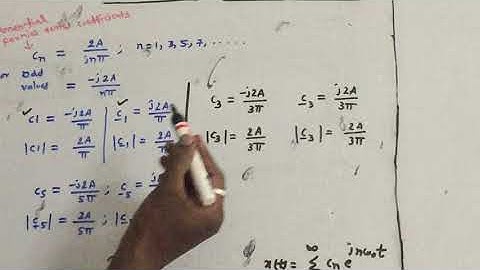 fourier series coefficients
cn = 2A/jnπ ; n=1, 3, 5, 7, .....
or odd values = -j2A/nπ
c1 = -j2A/π c-1 = j2A/π c3 = -j2A/3π c-3 = j2A/3π
|c1| = 2A/π |c-1| = 2A/π |c3| = 2A/3π |c-3| = 2A/3π
c5 = -j2A/5π ; c-5 =
|c5| = 2A/5π ;
x(t) = ∞ Σ cn e^jnω0t